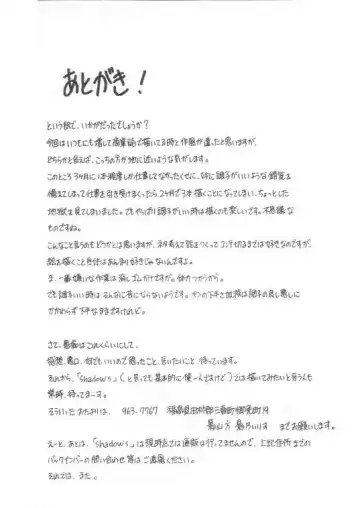 あとがき！
という訳で、いかがだったでしょうか？
今回はいつもにも増して商業誌で描いてる時と作風が違ったと思いますが、
どちらかと言えば、こっちの方が地に近いような気がします。
このところ3ヶ月に1本程度しか仕事してなかったくせに、妙に調子がいいような錯覚を
備えてしまって仕事を引き受けまくったら2ヶ月で3本描くことになってしまい、ちょっとした
地獄を見てしまいました。でもやっぱり調子がいい時は描くのも楽しいです。不思議な
ものですね。
こんなこと言うのもどうかとは思いますが、ネタ考えて話をつくってコンテ切るまでは好きなのですが、
絵を描くこと自体はあんまり好きじゃないんですよ。
ま、一番嫌いな作業は消しゴムかけですが。体力つかうから。
でも調子いい時はそんなに苦にならないようです。
かかわらず下手なままですけれど。
さて、愚痴はこれくらいにして、
感想、悪口、何でもいいので思ったこと、言いたいこと待っています。
それから、「shadow's」(と言っても基本的に僕一人だけど)では描いてみたいと言う人も
常時、待ってまーす。
そういったおたよりは、963-7767
までお願いします。
えーと、あとは、「shadow's」は現時点では通販は行ってませんので、上記住所までの
バックナンバーの問い合わせ等はご遠慮ください。
それでは、また。